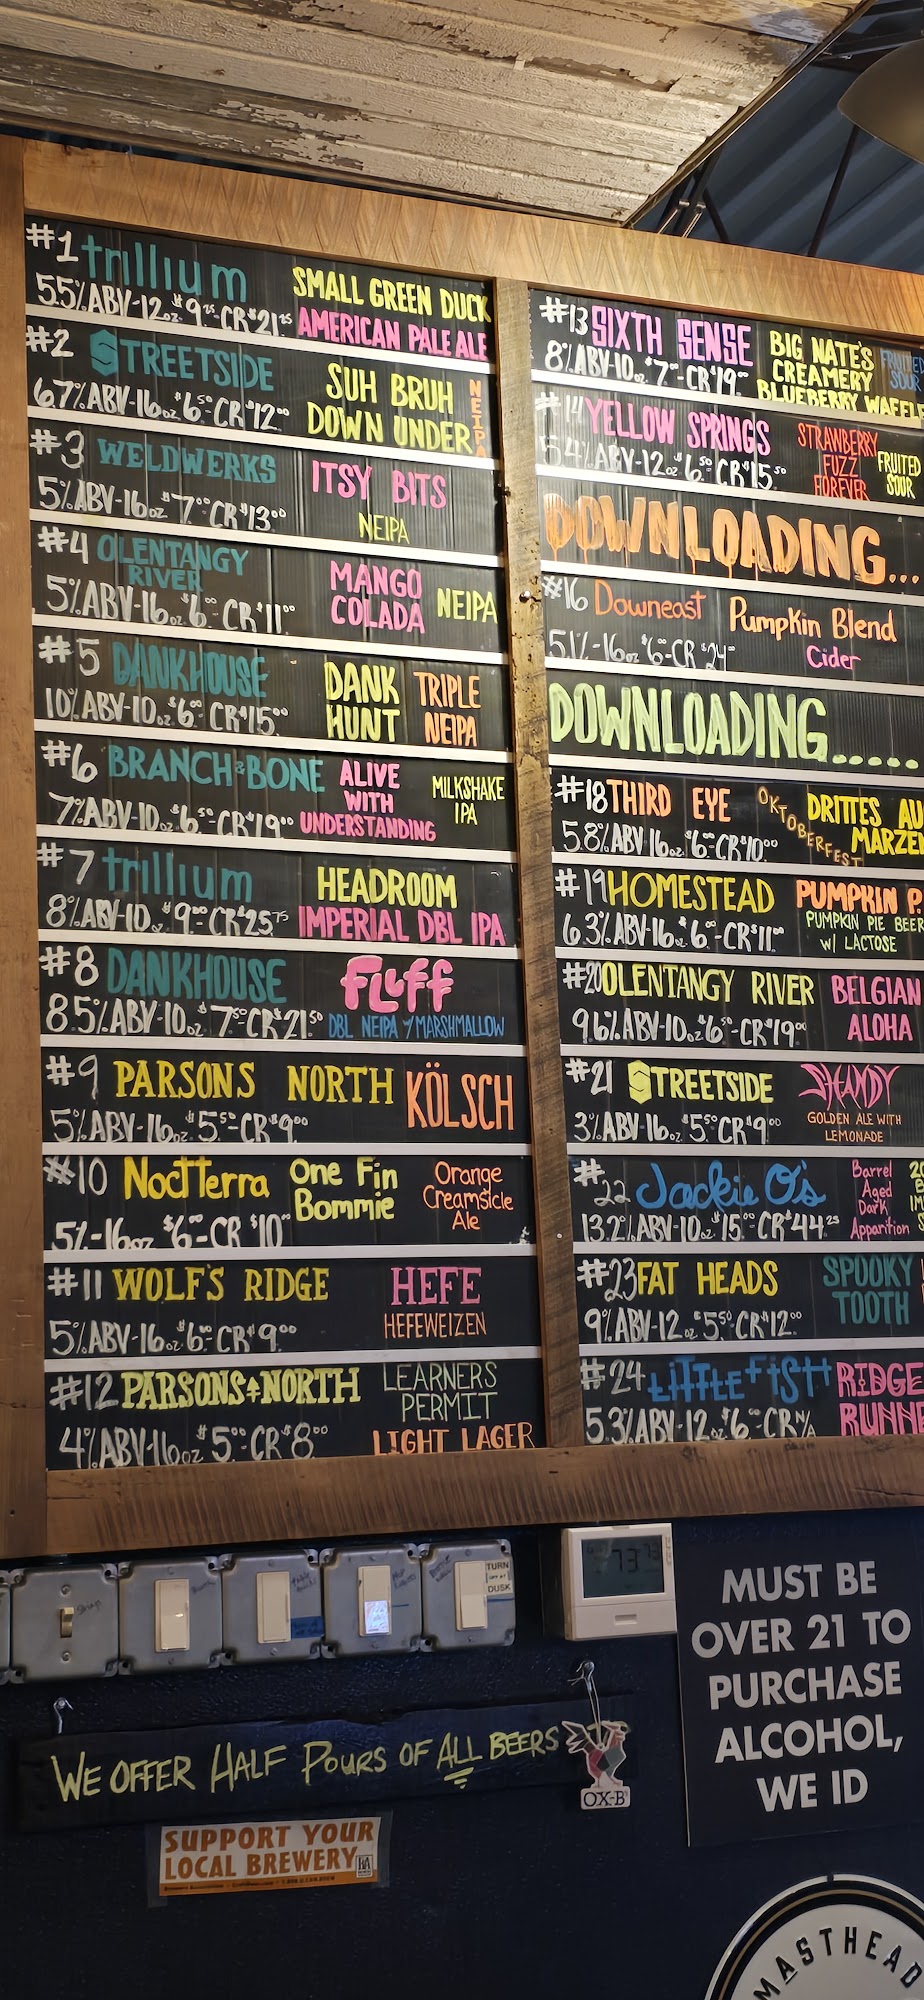 #1 trillium SMALL GREEN DUCK
5.5%ABV-12oz $9.25-CR$21.25 AMERICAN PALE ALE
#2 STREETSIDE SUH BRUH
6.7%ABV-16oz $6.50-CR$12.00 DOWN UNDER NEIPA
#3 WELDWERKS ITSY BITS
5%ABV-16oz $7.00-CR$13.00 NEIPA
#4 OLENTANGY RIVER MANGO COLADA NEIPA
5%ABV-16oz $6.00-CR$11.00
#5 DANKHOUSE DANK HUNT TRIPLE NEIPA
10%ABV-10oz $6.00-CR$15.00
#6 BRANCH & BONE ALIVE WITH UNDERSTANDING MILKSHAKE IPA
7%ABV-10oz $6.50-CR$19.00
#7 trillium HEADROOM
8%ABV-10oz $9.00-CR$25.75 IMPERIAL DBL IPA
#8 DANKHOUSE FLUFF
8.5%ABV-10oz $7.50-CR$21.50 DBL NEIPA W/MARSHMALLOW
#9 PARSONS NORTH KÖLSCH
5%ABV-16oz $5.50-CR$9.00
#10 NocTTerra One Fin Bommie Orange Creamsicle Ale
5%-16oz $6.00-CR $10.00
#11 WOLF'S RIDGE HEFE
5%ABV-16oz $6.00-CR$9.00 HEFEWEIZEN
#12 PARSONS+NORTH LEARNERS PERMIT
4%ABV-16oz $5.00-CR$8.00 LIGHT LAGER
#13 SIXTH SENSE BIG NATE'S CREAMERY BLUEBERRY WAFFLE FRUITED SOUR
8%ABV-10oz $7.00-CR$19.00
#14 YELLOW SPRINGS STRAWBERRY FUZZ FOREVER FRUITED SOUR
5.4%ABV-12oz $6.50-CR$15.50
DOWNLOADING...
#16 Downeast Pumpkin Blend
5.1%-16oz $6.00-CR $24.00 Cider
DOWNLOADING.....
#18 THIRD EYE OKTOBERFEST DRITTES AU
5.8%ABV 16oz $6.00-CR$10.00 MARZE
#19 HOMESTEAD PUMPKIN P
6.3%ABV-16oz $6.00-CR$11.00 PUMPKIN PIE BEER W/ LACTOSE
#20 OLENTANGY RIVER BELGIAN
9.6%ABV-10oz $6.50-CR$19.00 ALOHA
#21 STREETSIDE SHANDY
3%ABV 16oz $5.50 CR$9.00 GOLDEN ALE WITH LEMONADE
#22 Jackie O's Barrel Aged Dark Apparition
13.2%ABV-10oz $15.00 CR$44.25
#23 FAT HEADS SPOOKY
9%ABV-12oz $5.50 CR$12.00 TOOTH
#24 LiTTLE FiSH RIDGE
5.3%ABV-12oz $6.00-CR N/A RUNNE
TURN OFF AT DUSK
73 73
MUST BE
OVER 21 TO
PURCHASE
ALCOHOL,
WE ID
WE OFFER HALF POURS OF ALL BEERS
OX-B
SUPPORT YOUR
LOCAL BREWERY
MASTHEAD